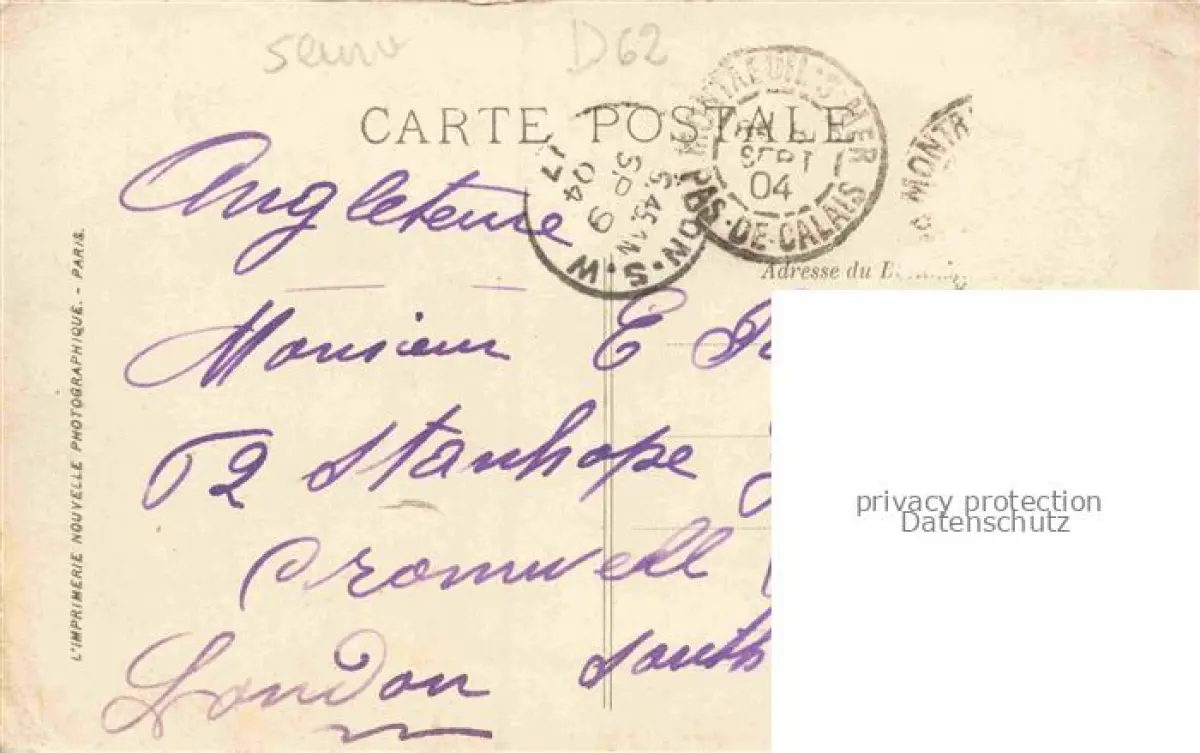 senne
D62
CARTE POSTALE
MONTREUIL-S-MER
SEPT
04
PAS-DE-CALAIS
MONTR
5.45.AM
SP 9
04
17
ON.S.W
Angleterre
Adresse du
Monsieur E
52 Stanhope
Cromwell
London South
L'IMPRIMERIE NOUVELLE PHOTOGRAPHIQUE. - PARIS.
privacy protection
Datenschutz